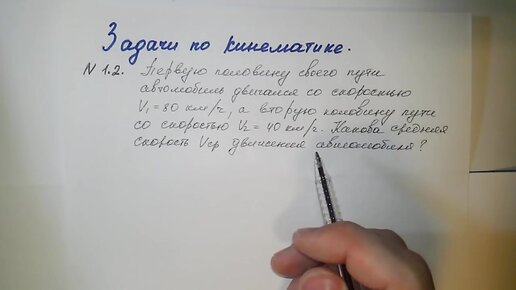 Задачи по кинематике.
N 1.2. Первую половину своего пути
автомобиль двигался со скоростью
V₁ = 80 км/г, а вторую половину пути
со скоростью V₂ = 40 км/г. Какова средняя
скорость Vср движения автомобиля?